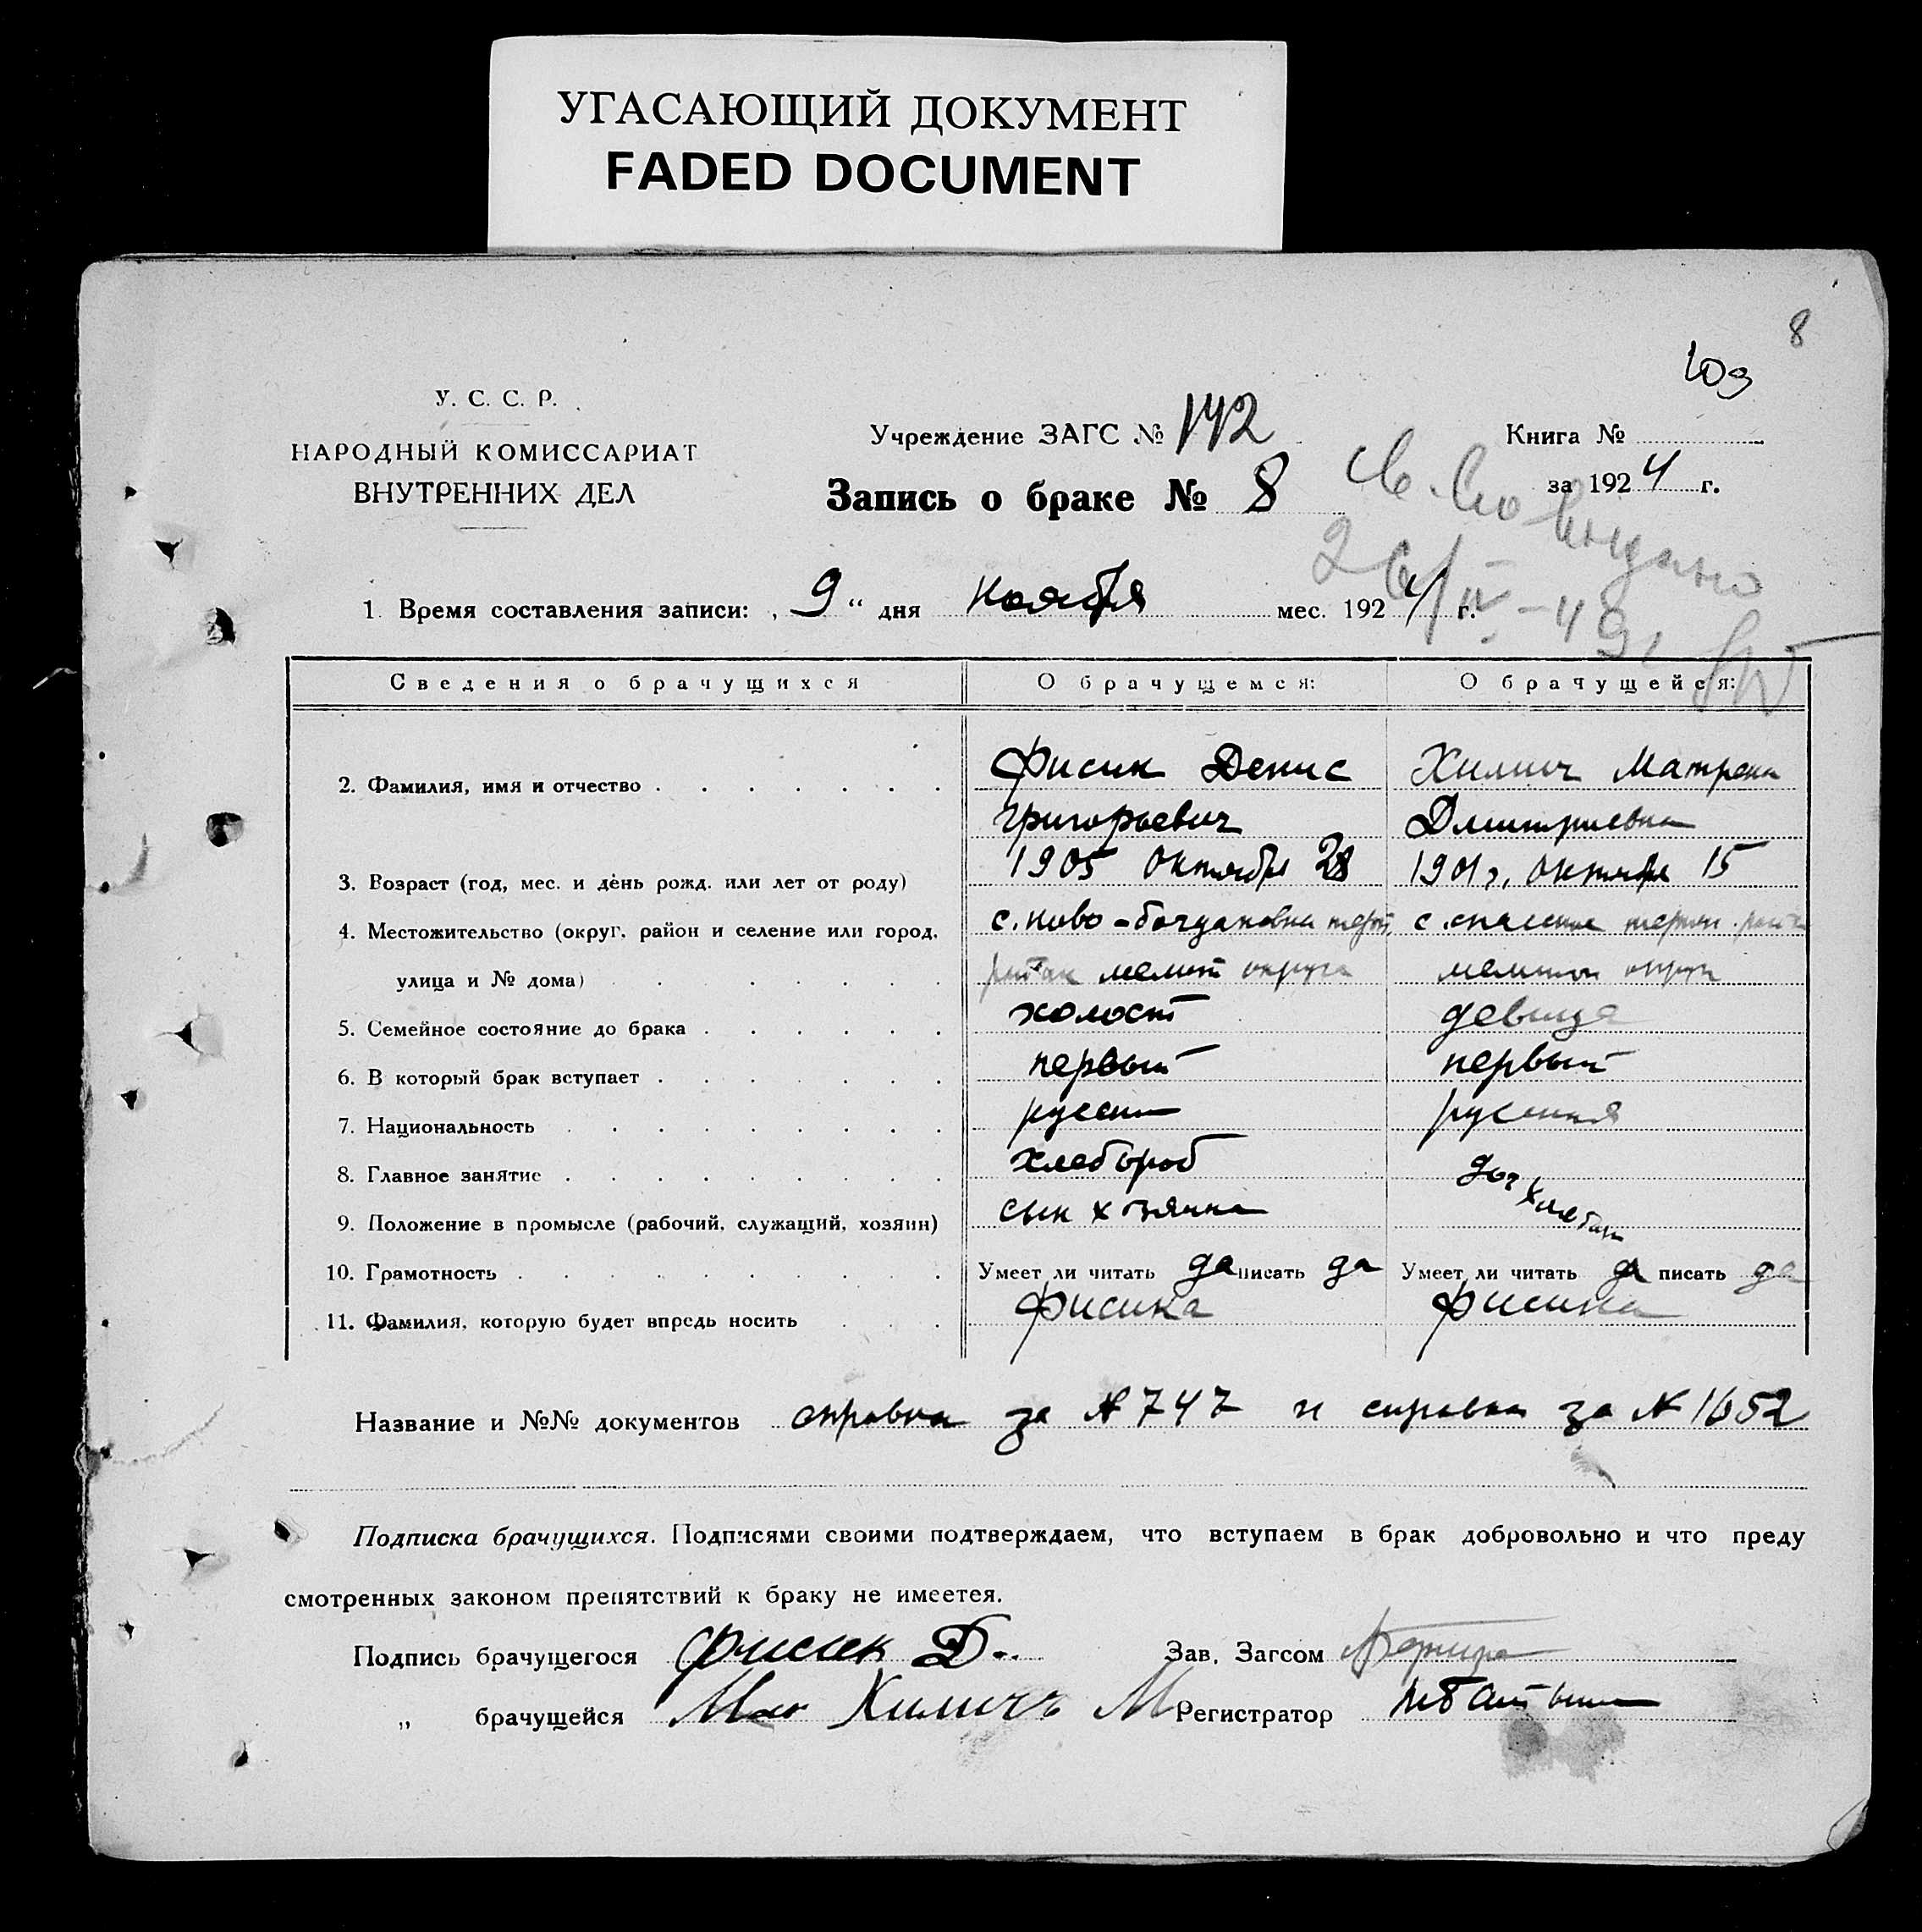 УГАСАЮЩИЙ ДОКУМЕНТ
FADED DOCUMENT
8
109
У. С. С. Р.
НАРОДНЫЙ КОМИССАРИАТ
ВНУТРЕННИХ ДЕЛ
Учреждение ЗАГС № 142
Книга №
за 1924 г.
Запись о браке № 8
Св-во выдано
26/IV-49г
1. Время составления записи: „9“ дня ноября мес. 1924 г.
Сведения о брачущихся О брачущемся: О брачущейся:
2. Фамилия, имя и отчество Фисик Денис Хилич Матрена
Григорьевич Дмитриевна
3. Возраст (год, мес. и день рожд. или лет от роду) 1905 октября 28 1901 г. октября 15
4. Местожительство (округ, район и селение или город, с. ново-богдановка терп с.
улица и № дома) мелит округа мелитоп округа
5. Семейное состояние до брака холост девица
6. В который брак вступает первый первый
7. Национальность русский русская
8. Главное занятие хлебороб
9. Положение в промысле (рабочий, служащий, хозяин) сын хозяина
10. Грамотность Умеет ли читать да писать да Умеет ли читать да писать да
11. Фамилия, которую будет впредь носить Фисика Фисика
Название и №№ документов справка за № 747 и справка за № 1652
Подписка брачущихся. Подписями своими подтверждаем, что вступаем в брак добровольно и что преду
смотренных законом препятствий к браку не имеется.
Подпись брачущегося Фисик Д. Зав. Загсом
„ брачущейся Хиличъ М Регистратор